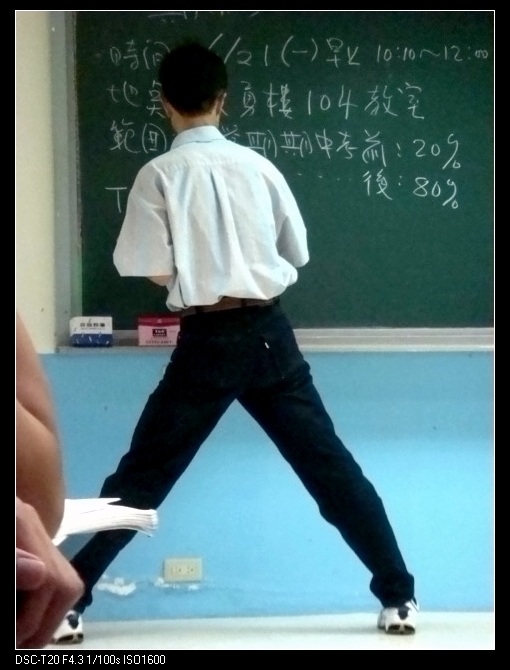 時間 /21(一)早上 10:10~12:00
地 樓104教室
範圍 期中考前:20%
後:80%
T
DSC-T20 F4.3 1/100s ISO1600